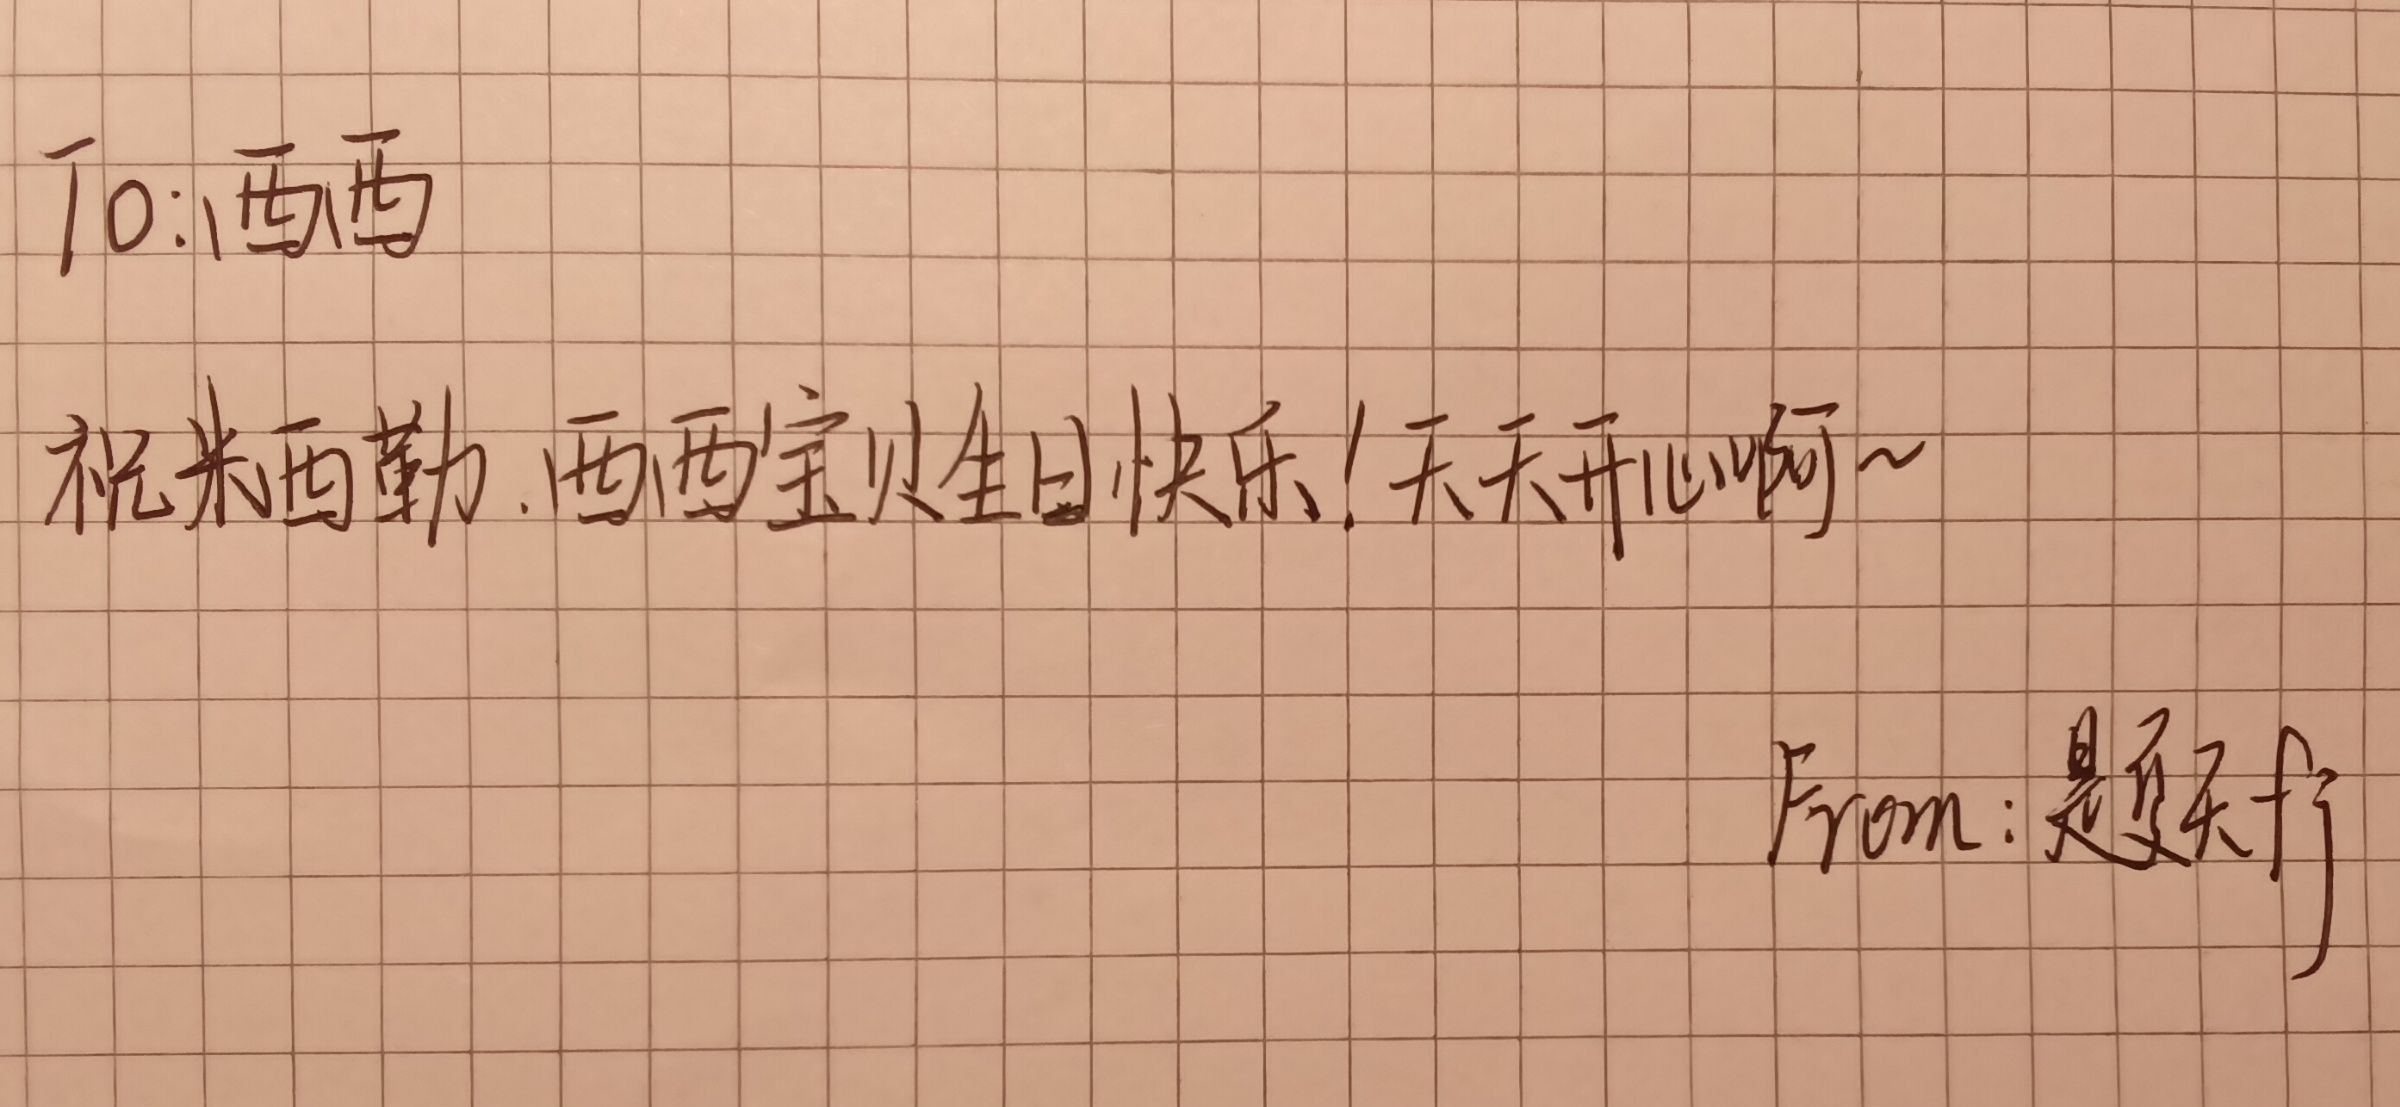 To:西西
祝米西勒.西西宝贝生日快乐!天天开心啊~
From:是夏天fj